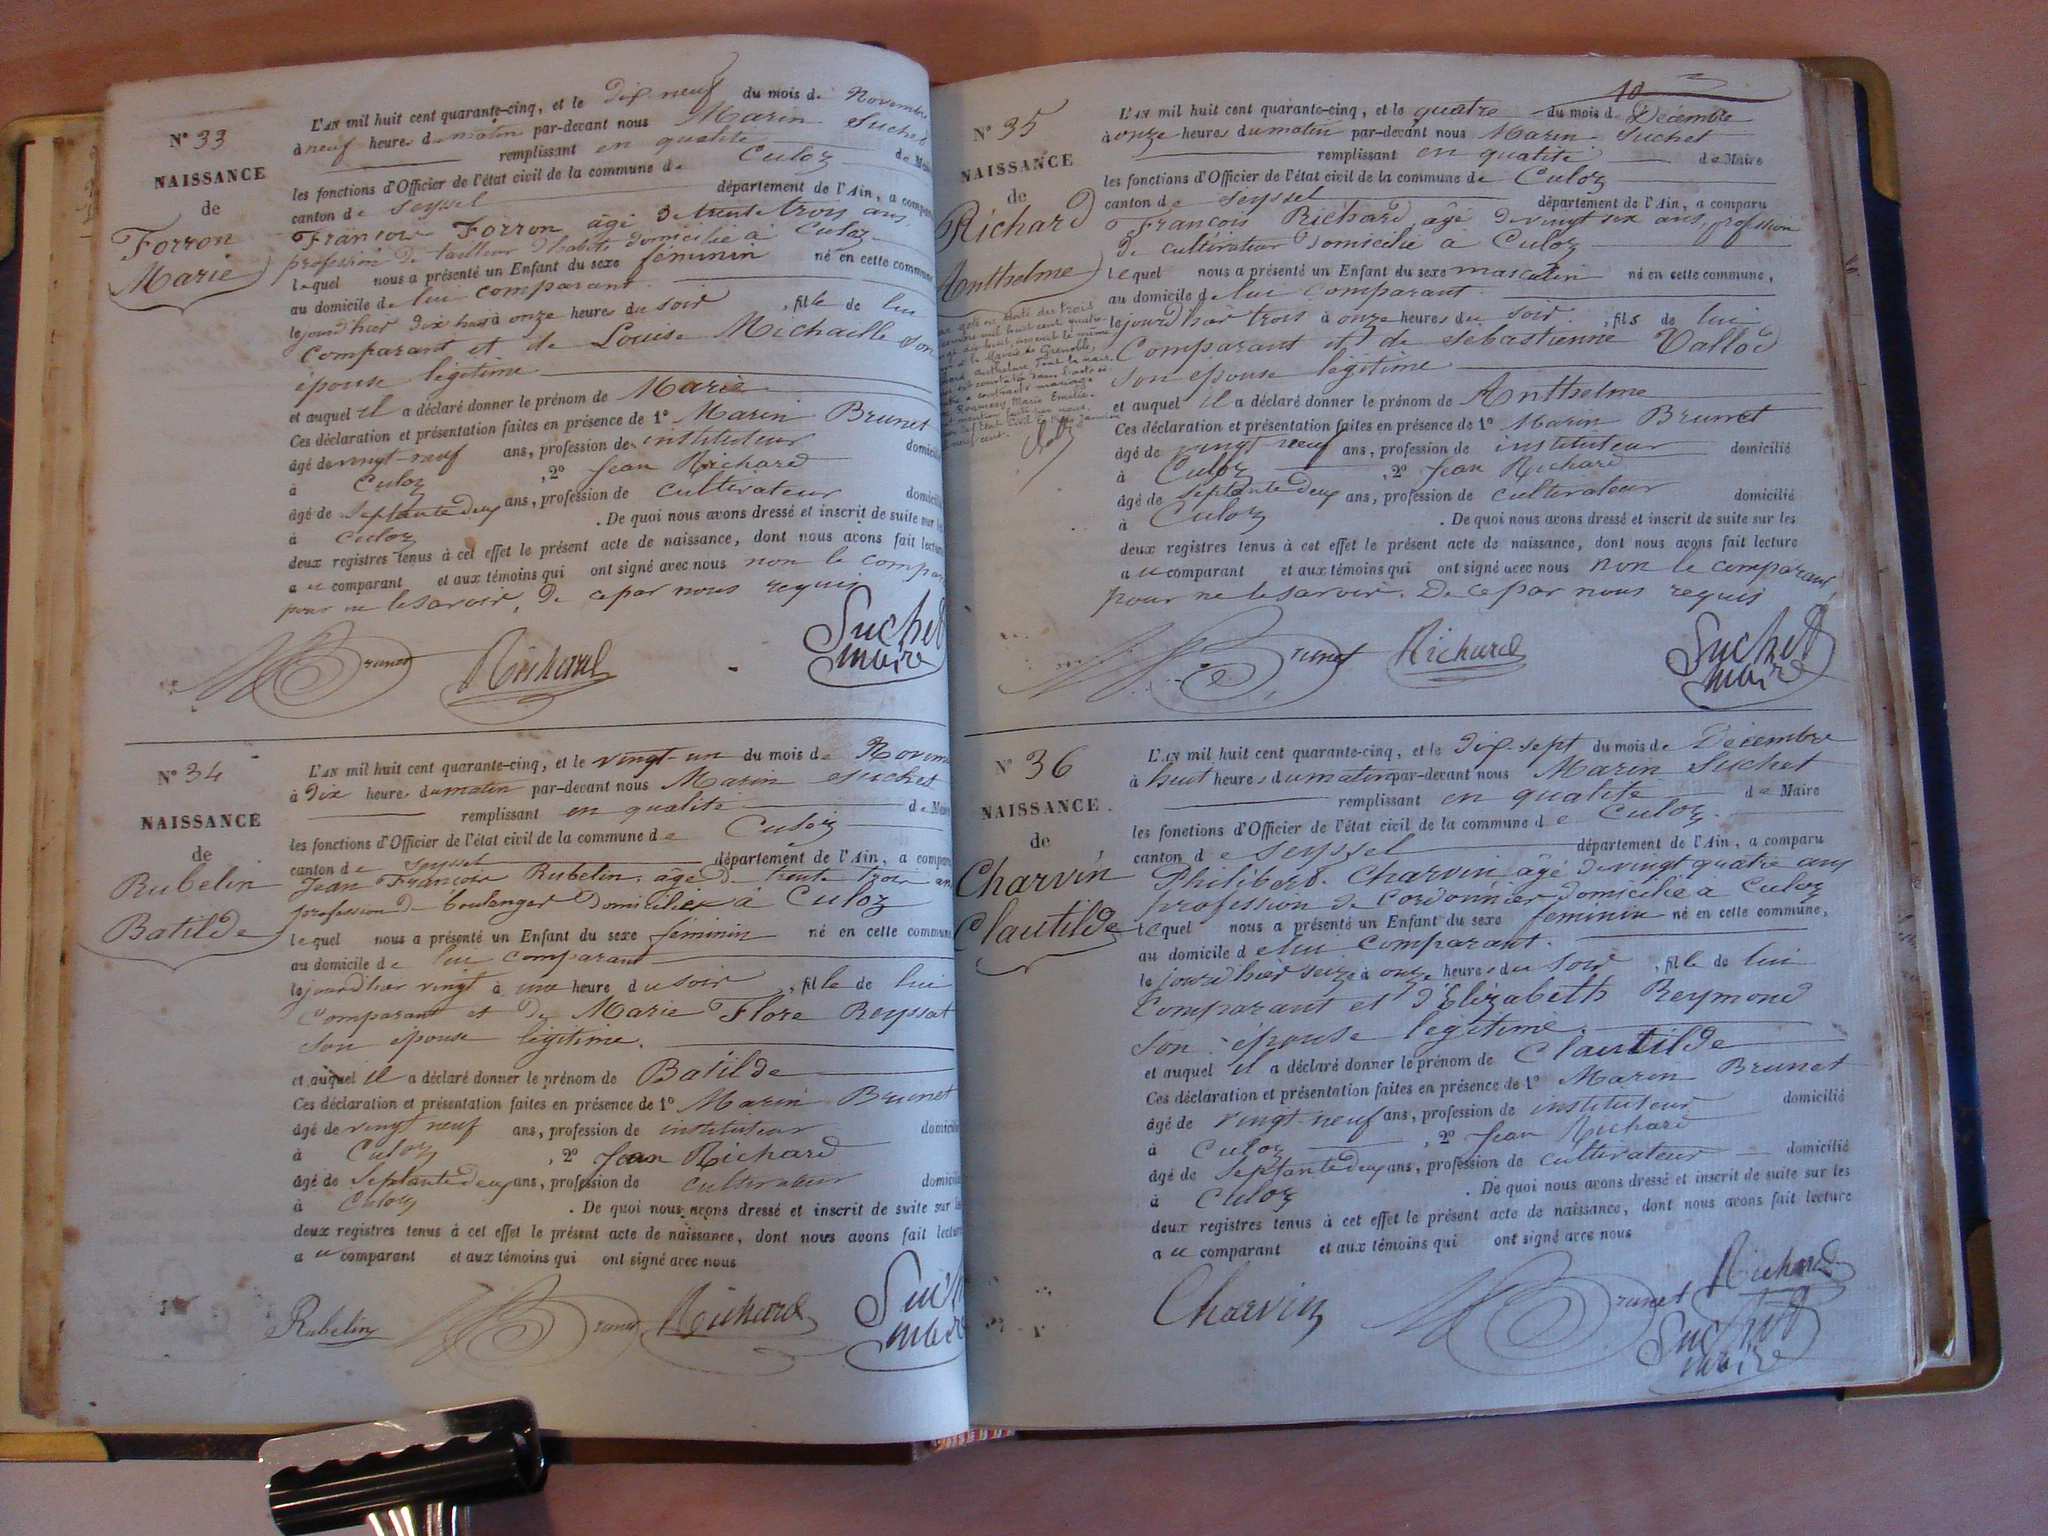 N° 33
NAISSANCE
de
Forron
Marie
L'AN mil huit cent quarante-cinq, et le dix neuf du mois de Novembre
à neuf heures du matin par-devant nous Marin Suchet
remplissant en qualité de Maire
les fonctions d'Officier de l'état civil de la commune de Culoz
canton de Seyssel département de l'Ain, a comparu
François Forron âgé de trente trois ans,
profession de tailleur d'habits domicilié à Culoz
lequel nous a présenté un Enfant du sexe féminin né en cette commune
au domicile de lui comparant.
le jourd'hier dix huit à onze heures du soir, fille de lui
Comparant et de Louise Michaille son
épouse légitime
et auquel il a déclaré donner le prénom de Marie
Ces déclaration et présentation faites en présence de 1° Marin Brunet
âgé de vingt-neuf ans, profession de instituteur domicilié
à Culoz, 2° Jean Richard
âgé de Septante deux ans, profession de cultivateur domicilié
à Culoz. De quoi nous avons dressé et inscrit de suite sur les
deux registres tenus à cet effet le présent acte de naissance, dont nous avons fait lecture
au comparant et aux témoins qui ont signé avec nous non le compar
pour ne le savoir, de ce par nous requis
Brunet Richard Suchet
maire
N° 34
NAISSANCE
de
Rubelin
Batilde
L'AN mil huit cent quarante-cinq, et le vingt-un du mois de Novem
à dix heures du matin par-devant nous Marin Suchet
remplissant en qualité de Maire
les fonctions d'Officier de l'état civil de la commune de Culoz
canton de Seyssel département de l'Ain, a comparu
Jean François Rubelin, âgé de trente trois ans
profession de boulanger domicilié à Culoz
lequel nous a présenté un Enfant du sexe féminin né en cette commune
au domicile de lui comparant
le jourd'hier vingt à une heure du soir, fille de lui
comparant et de Marie Flore Reyssat
son épouse légitime.
et auquel il a déclaré donner le prénom de Batilde
Ces déclaration et présentation faites en présence de 1° Marin Brunet
âgé de vingt neuf ans, profession de instituteur domicilié
à Culoz, 2° Jean Richard
âgé de Septante deux ans, profession de cultivateur domicilié
à Culoz. De quoi nous avons dressé et inscrit de suite sur les
deux registres tenus à cet effet le présent acte de naissance, dont nous avons fait lecture
au comparant et aux témoins qui ont signé avec nous
Rubelin Brunet Richard Suchet
maire
10
N° 35
NAISSANCE
de
Richard
Anthelme
L'AN mil huit cent quarante-cinq, et le quatre du mois de Décembre
à onze heures du matin par-devant nous Marin Suchet
remplissant en qualité de Maire
les fonctions d'Officier de l'état civil de la commune de Culoz
canton de Seyssel département de l'Ain, a comparu
François Richard, âgé de vingt six ans, profession
de cultivateur domicilié à Culoz
lequel nous a présenté un Enfant du sexe masculin né en cette commune,
au domicile de lui comparant.
le jourd'hier trois à onze heures du soir, fils de lui
Comparant et de Sébastienne Vallod
son épouse légitime
et auquel il a déclaré donner le prénom de Anthelme
Ces déclaration et présentation faites en présence de 1° Marin Brunet
âgé de vingt-neuf ans, profession de instituteur domicilié
à Culoz, 2° Jean Richard
âgé de septante deux ans, profession de cultivateur domicilié
à Culoz. De quoi nous avons dressé et inscrit de suite sur les
deux registres tenus à cet effet le présent acte de naissance, dont nous avons fait lecture
au comparant et aux témoins qui ont signé avec nous non le comparant,
pour ne le savoir. De ce par nous requis
Brunet Richard Suchet
maire
N° 36
NAISSANCE
de
Charvin
Clautilde
L'AN mil huit cent quarante-cinq, et le dix-sept du mois de Décembre
à huit heures du matin par-devant nous Marin Suchet
remplissant en qualité de Maire
les fonctions d'Officier de l'état civil de la commune de Culoz.
canton de Seyssel département de l'Ain, a comparu
Philibert Charvin âgé de vingt quatre ans
profession de Cordonnier domicilié à Culoz
lequel nous a présenté un Enfant du sexe féminin né en cette commune,
au domicile de lui comparant.
le jourd'hier seize à onze heures du soir, fille de lui
Comparant et d'Elizabeth Reymond
son épouse légitime.
et auquel il a déclaré donner le prénom de Clautilde
Ces déclaration et présentation faites en présence de 1° Marin Brunet
âgé de vingt-neuf ans, profession de instituteur domicilié
à Culoz, 2° Jean Richard
âgé de Septante deux ans, profession de cultivateur domicilié
à Culoz. De quoi nous avons dressé et inscrit de suite sur les
deux registres tenus à cet effet le présent acte de naissance, dont nous avons fait lecture
au comparant et aux témoins qui ont signé avec nous
Charvin Brunet Richard
Suchet
maire